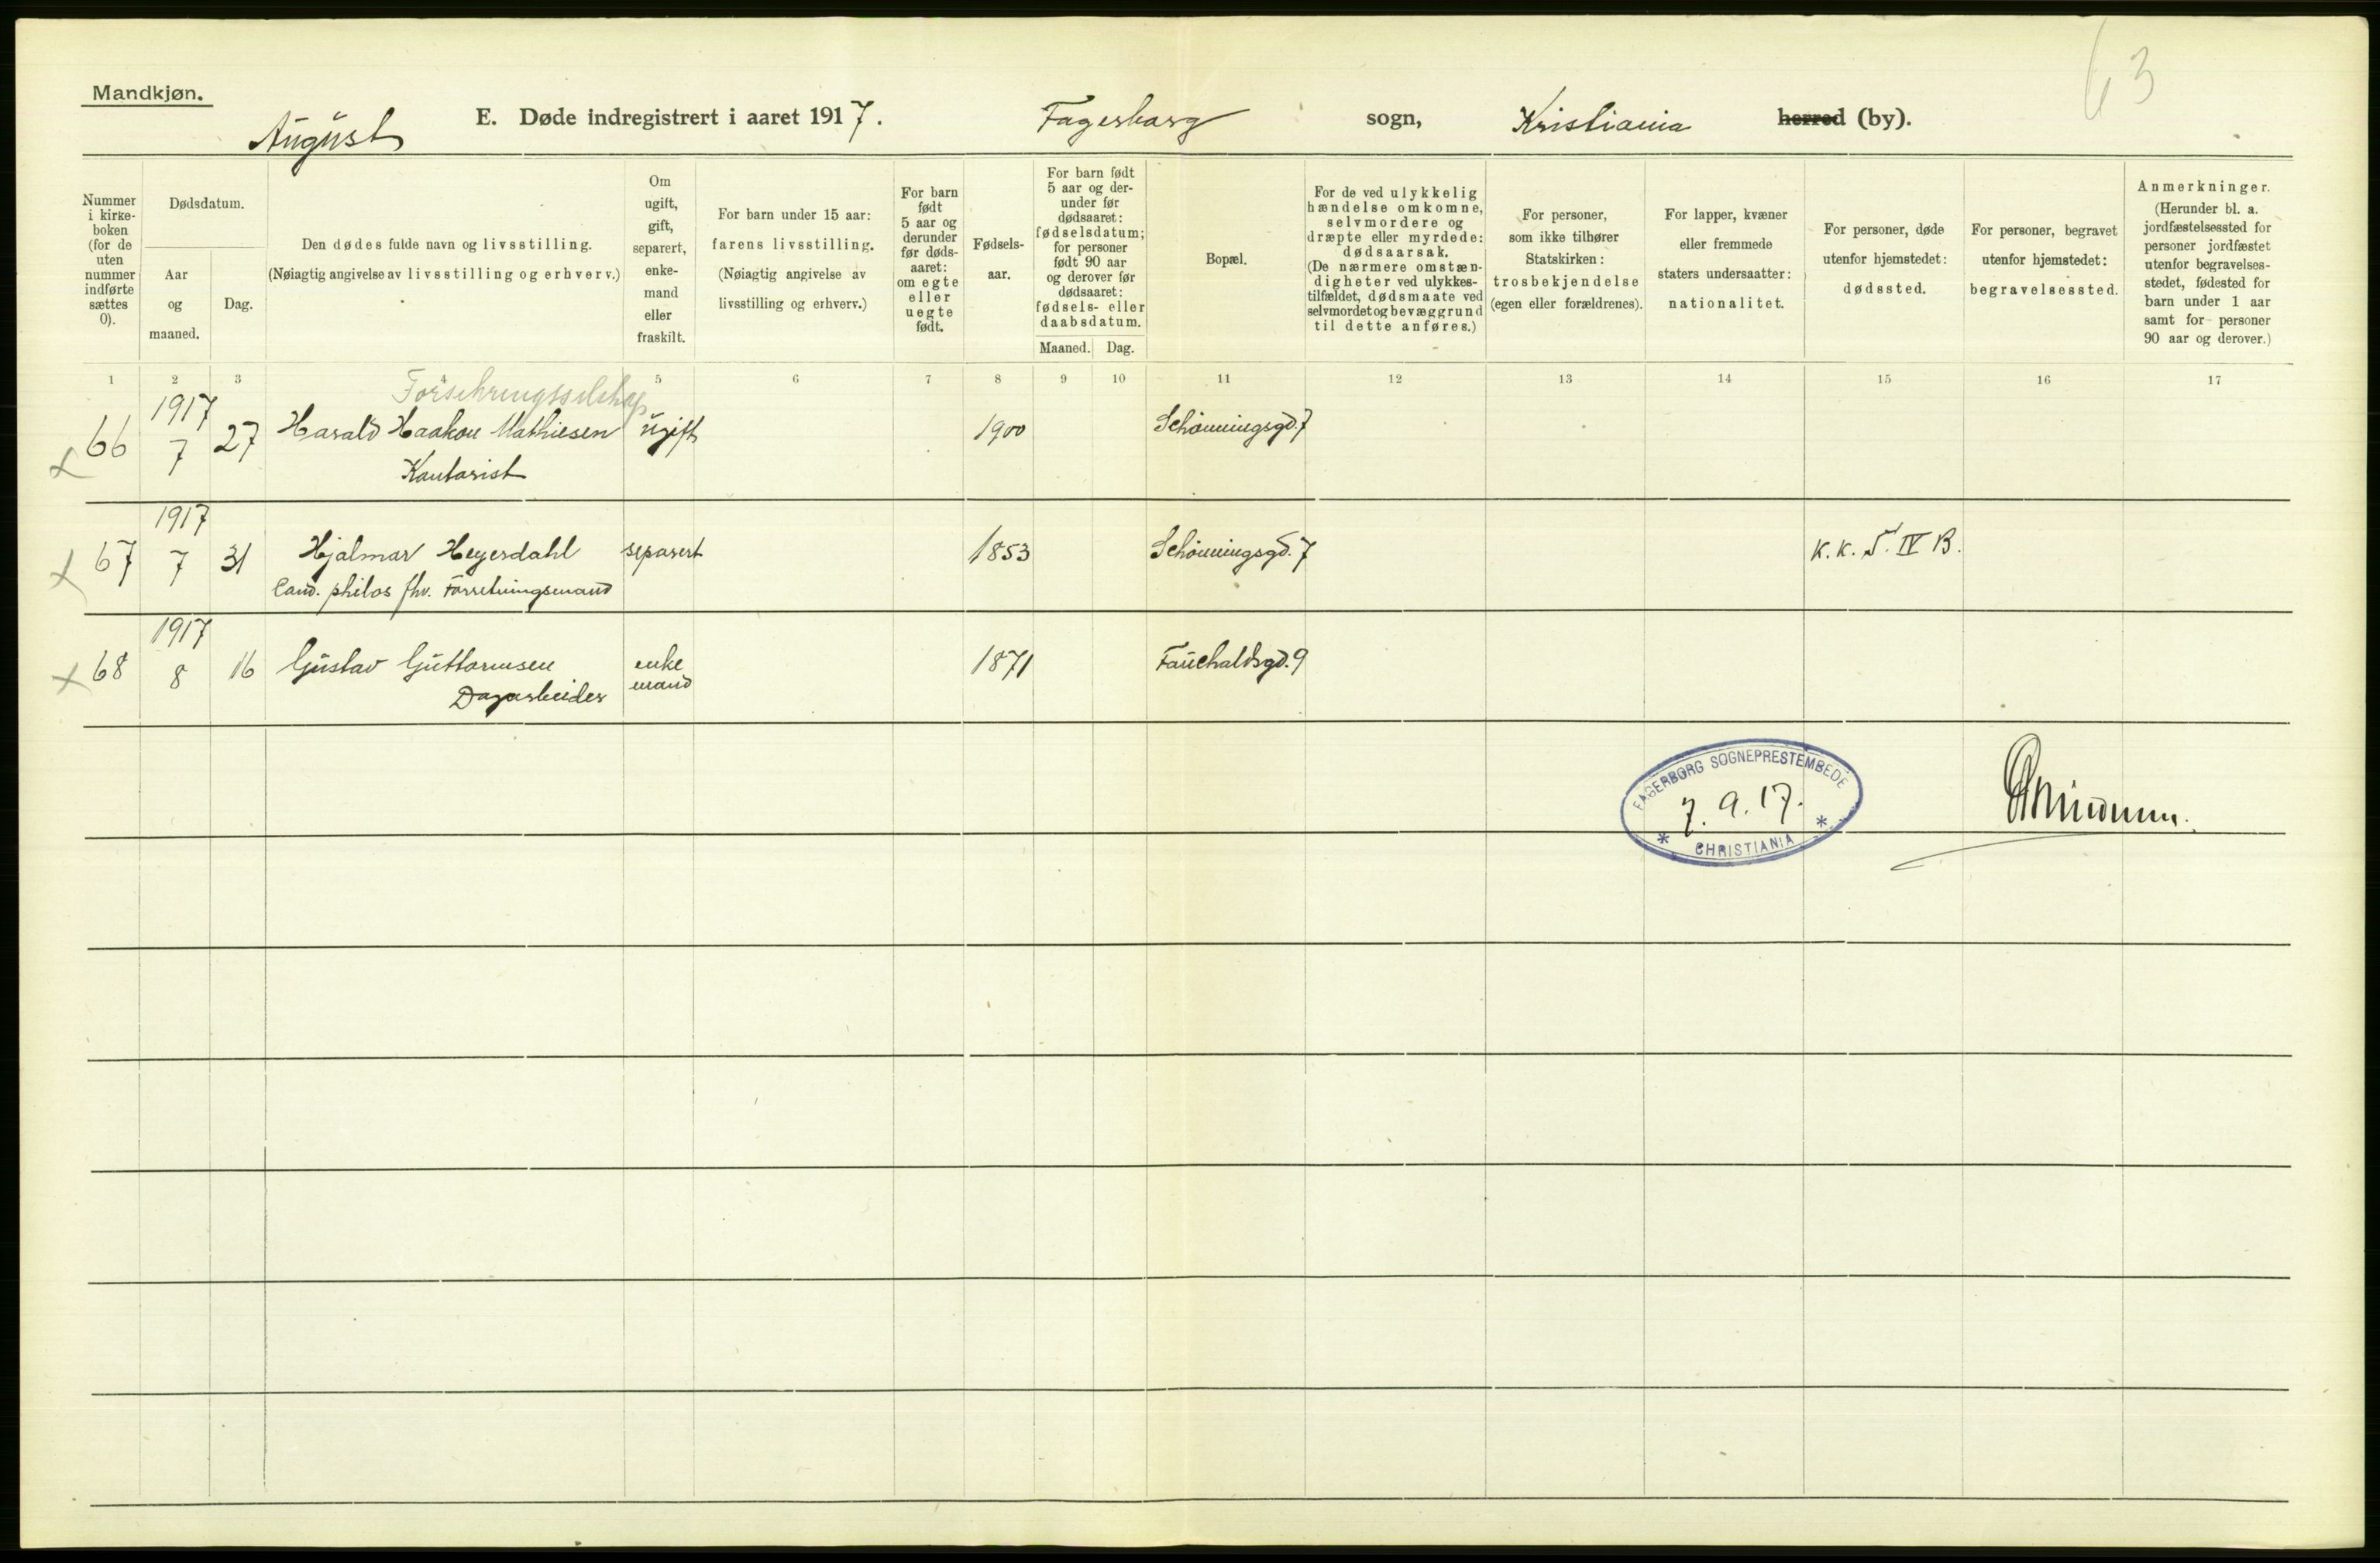 63
Mandkjøn.
August
E. Døde indregistrert i aaret 1917.
Fagerborg sogn, Kristiania herred (by).
Nummer i kirke-boken (for de uten nummer indførte sættes 0).
Dødsdatum.
Aar og maaned.
Dag.
Den dødes fulde navn og livsstilling.
(Nøiagtig angivelse av livsstilling og erhverv.)
Om ugift, gift, separert, enke-mand eller fraskilt.
For barn under 15 aar:
farens livsstilling.
(Nøiagtig angivelse av livsstilling og erhverv.)
For barn født 5 aar og derunder før døds-aaret: om egte eller uegte født.
Fødsels-aar.
For barn født 5 aar og der-under før dødsaaret: fødselsdatum; for personer født 90 aar og derover før dødsaaret: fødsels- eller daabsdatum.
Maaned. Dag.
Bopæl.
For de ved ulykkelig hændelse omkomne, selvmordere og dræpte eller myrdede: dødsaarsak.
(De nærmere omstæn-digheter ved ulykkes-tilfældet, dødsmaate ved selvmordet og bevæggrund til dette anføres.)
For personer, som ikke tilhører Statskirken: trosbekjendelse (egen eller forældrenes).
For lapper, kvæner eller fremmede staters undersaatter: nationalitet.
For personer, døde utenfor hjemstedet: dødssted.
For personer, begravet utenfor hjemstedet: begravelsessted.
Anmerkninger.
(Herunder bl. a. jordfæstelsessted for personer jordfæstet utenfor begravelses-stedet, fødested for barn under 1 aar samt for personer 90 aar og derover.)
1 2 3 5 6 7 8 9 10 11 12 13 14 15 16 17
Forsikringsselskap
1917
66 7 27 Harald Haakon Mathiesen ugift 1900 Schønningsgd. 7
Kontorist
1917
67 7 31 Hjalmar Heyerdahl separert 1853 Schønningsgd. 7 K. K. S. IV B.
Cand. philos fhv. Forretningsmand
1917
68 8 16 Gustav Guttormsen enke mand 1871 Fauchaldsgd. 9
Dagarbeider
FAGERBORG SOGNEPRESTEMBEDE
7. 9. 17.
* CHRISTIANIA *